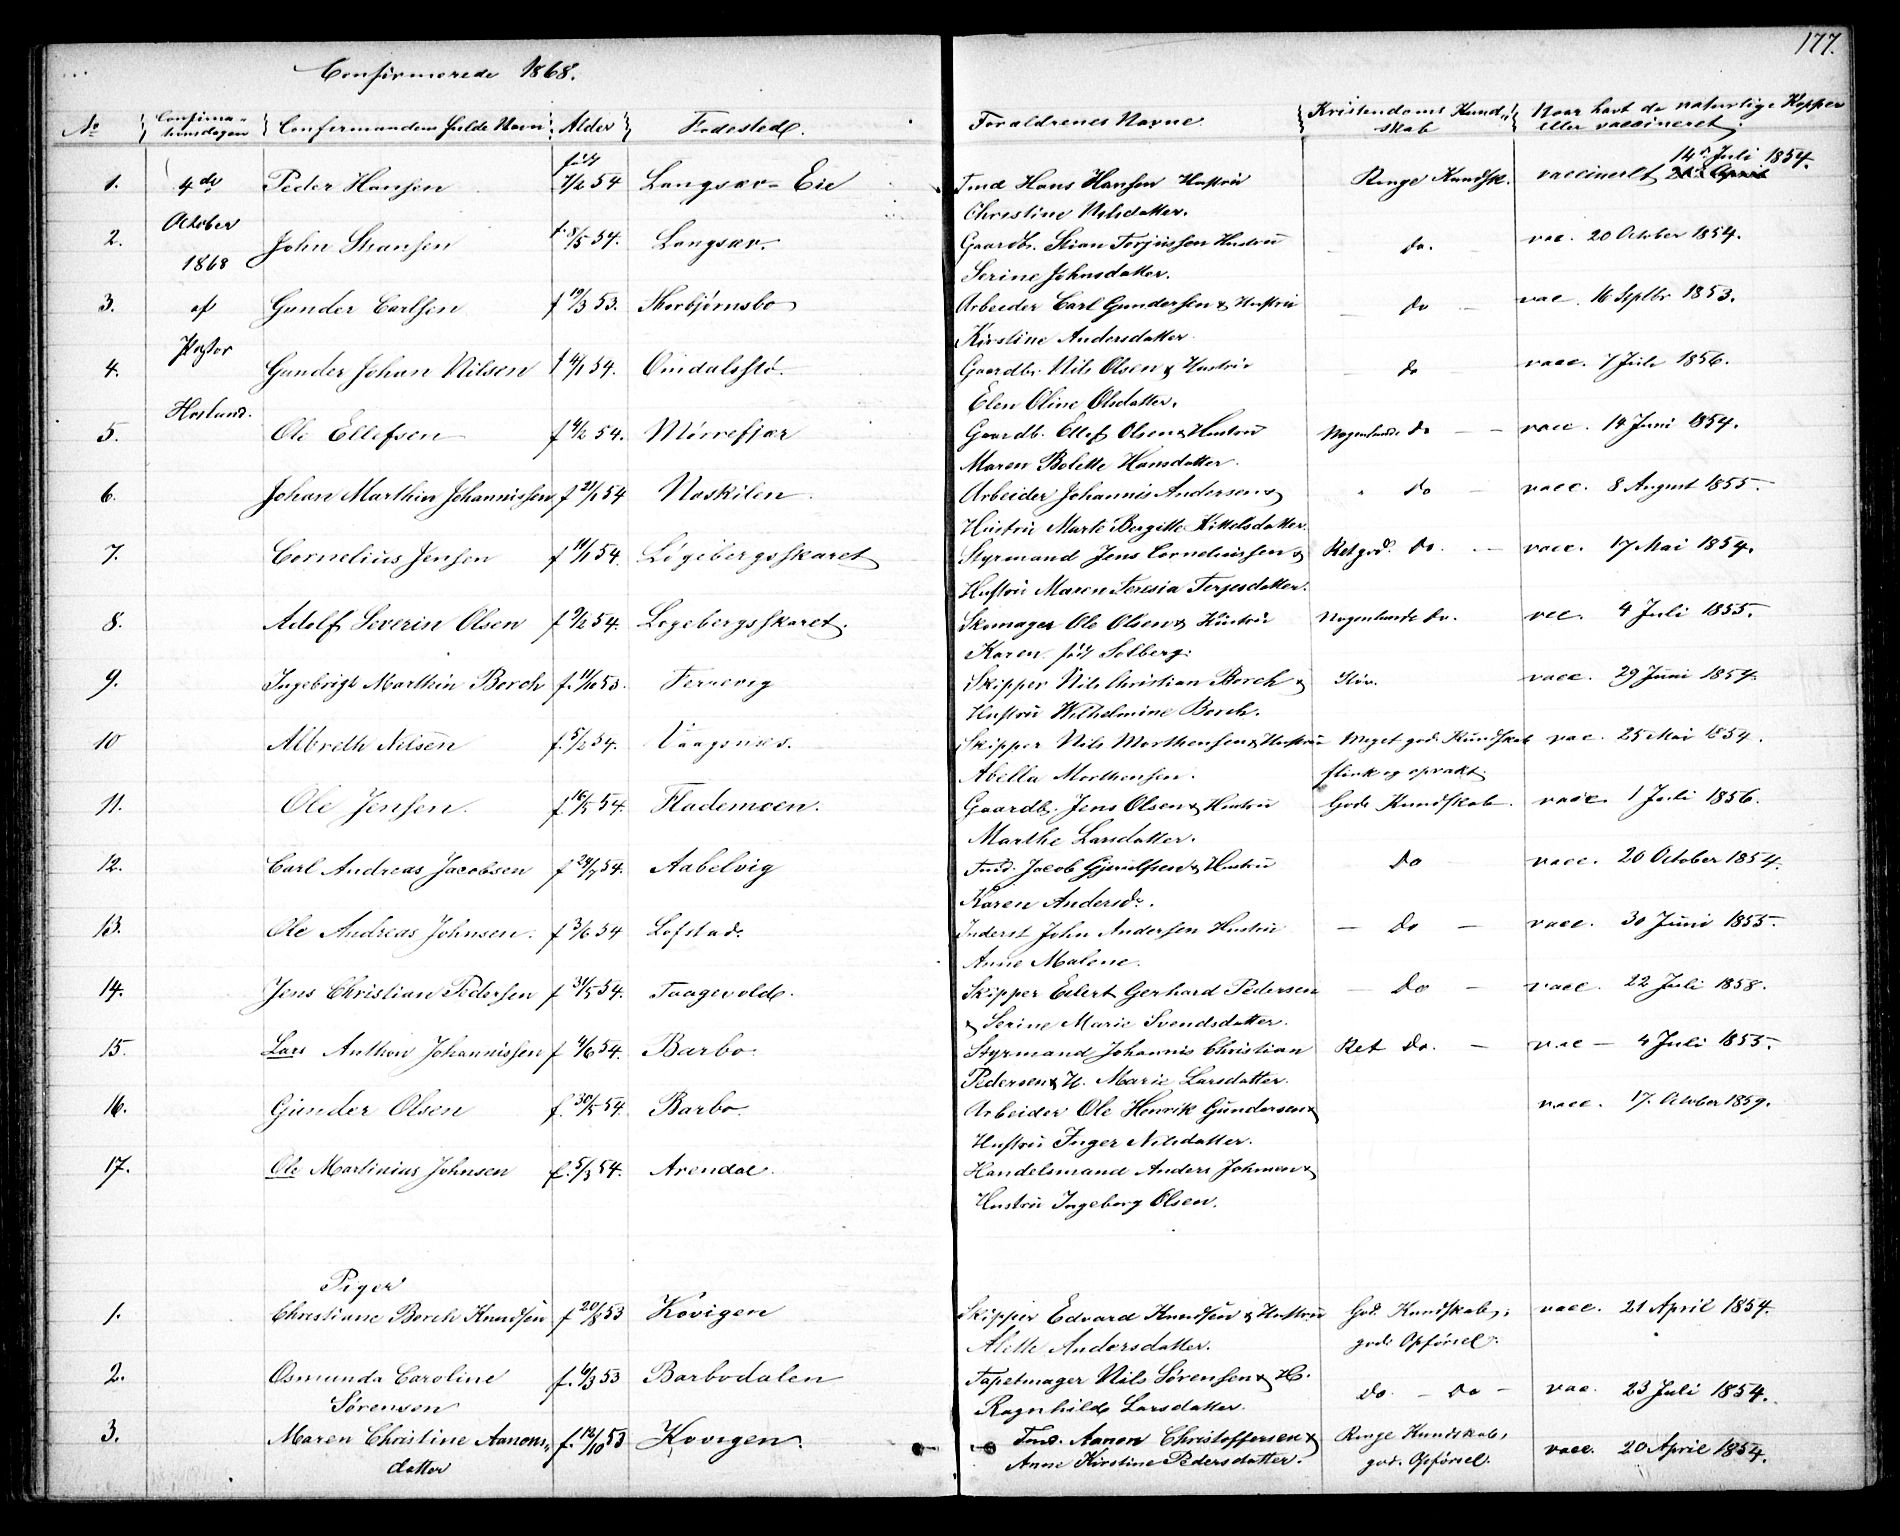 177.
Confirmerede 1868.
No Confirmationsdagen Confirmandens fulde Navn Alder Fødested. Forældrenes Navne Kristendoms Kundskab Naar havt de naturlige Kopper eller vaccineret
1. 4de Peder Hansen født 7/2 54 Langsæv-Eie Tmd Hans Hansen Hustru Ringe Kundsk. vaccineret 14de Juli 1854.
Christine Nilsdatter.
2. October 1868 John Stiansen f 8/5 54. Langsæv. Gaardb. Stian Torjussen Hustru do. vac. 20 October 1854.
Serine Johnsdatter.
3. af Gunder Carlsen f 19/3 53. Thorbjørnsbo Arbeider Carl Gundersen & Hustru do vac. 16 Septbr 1853.
Kirstine Andersdatter
4. Pastor Gunder Johan Nilsen f 4/1 54. Gaardbr. Nils Olsen & Hustru do vacc. 7 Juli 1856.
Elen Oline Olsdatter.
5. Ole Ellefsen f 4/2 54. Mørrefjær Gaardb. Ellef Olsen & Hustru Nogenlunde do vacc. 14 Juni 1854.
Maren Bolette Hansdatter.
6. Johan Marthin Johannissen f 21/1 54 Naskilen Arbeider Johannis Andersen & do vacc. 8 August 1855.
Hustru Marte Bergitte Kittelsdatter.
7. Cornelius Jensen f 11/1 54. Løgebergsskaret Styrmand Jens Corneliussen & Ret god. do. vacc. 17 Mai 1854.
Hustru Maren Teresia Terjesdatter.
8. Adolf Severin Olsen f 9/2 54. Løgebergsskaret. Skomager Ole Olsen & Hustru Nogenlunde do. vcc. 4 Juli 1855.
Karen født Solberg.
9. Ingebrigt Marthin Borch f. 11/10 53. Fervevig Skipper Nils Christian Borch & vacc. 29 Juni 1854.
Hustru Wilhelmine Borch.
10 Albreth Nilsen f. 5/2 54. Vaagsnæs. Skipper Nils Morthensen & Hustru Meget god. Kundskab vac. 25 Mai 1854.
Abella Morthensen. flink og opvakt
11. Ole Jensen. f. 16/5 54. Flademoen. Gaardb. Jens Olsen & Hustru Gode Kundskab. vacc. 1 Juli 1856.
Marthe Larsdatter.
12. Carl Andreas Jacobsen f 24/7 54. Aabelvig Tmd. Jacob Gjeruldsen & Hustru Do vacc. 20 October 1854.
Karen Andersdr.
13. Ole Andreas Johnsen. f 3/6 54 Lofstad. Inderst John Andersen Hustru — Do — vacc. 30 Juni 1855.
Anne Malene.
14. Jens Christian Pedersen f 31/5 54. Taagevold. Skipper Eilert Gerhard Pedersen — Do — vacc. 22 Juli 1858.
& Serine Marie Svendsdatter.
15. Lars Anthon Johannissen f 4/6 54. Barbo. Styrmand Johannis Christian Ret do. — vac — 4 Juli 1855.
Pedersen & H. Marie Larsdatter.
16. Gunder Olsen f. 30/5 54. Barbo. Arbeider Ole Henrik Gundersen & vacc. 17. October 1859.
Hustru Inger Nilsdatter.
17. Ole Martinius Johnsen f. 5/3 54. Arendal. Handelsmand Anders Johnsen &
Hustru Ingeborg Olsen.
Piger
1. Christiane Borch Knudsen f 20/8 53 Kovigen Skipper Edvard Knudsen & Hustru God. Kundskab, vacc. 21 April 1854.
Alette Andersdatter. gode Opførsel.
2. Osmunda Caroline f. 6/3 53 Barbodalen Tapetmager Nils Sørensen & H. do. — do — vac. 23 Juli 1854.
Sørensen Ragnhild Larsdatter.
3. Maren Christine Aanons- f. 12/10 53 Kovigen. Tmd. Aanon Christoffersen & Ringe Kundskab, vacc. 20 April 1854.
datter Anne Kirstine Pedersdatter. god. Opførsel.